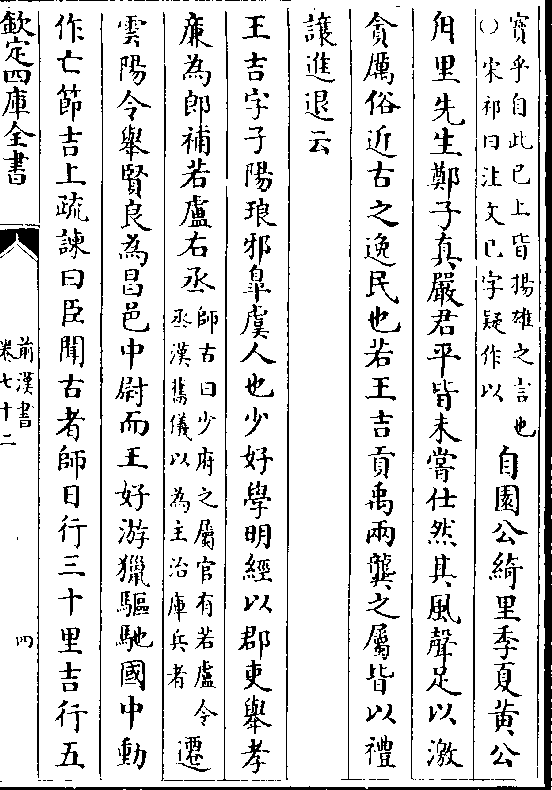 寶乎自此已上皆揚雄之言也
○宋祁曰注文已字疑作以
自園公綺里季夏黃公
甪里先生鄭子真嚴君平皆未嘗仕然其風聲足以激
貪厲俗近古之逸民也若王吉貢禹兩龔之屬皆以禮
讓進退云
王吉字子陽琅邪臯虞人也少好學明經以郡吏舉孝
廉為郎補若盧右丞
師古曰少府之屬官有若盧令
丞漢舊儀以為主治庫兵者
遷
雲陽令舉賢良為昌邑中尉而王好游獵驅馳國中動
作亡節吉上疏諫曰臣聞古者師日行三十里吉行五
欽定四庫全書
前漢書
卷七十二
四